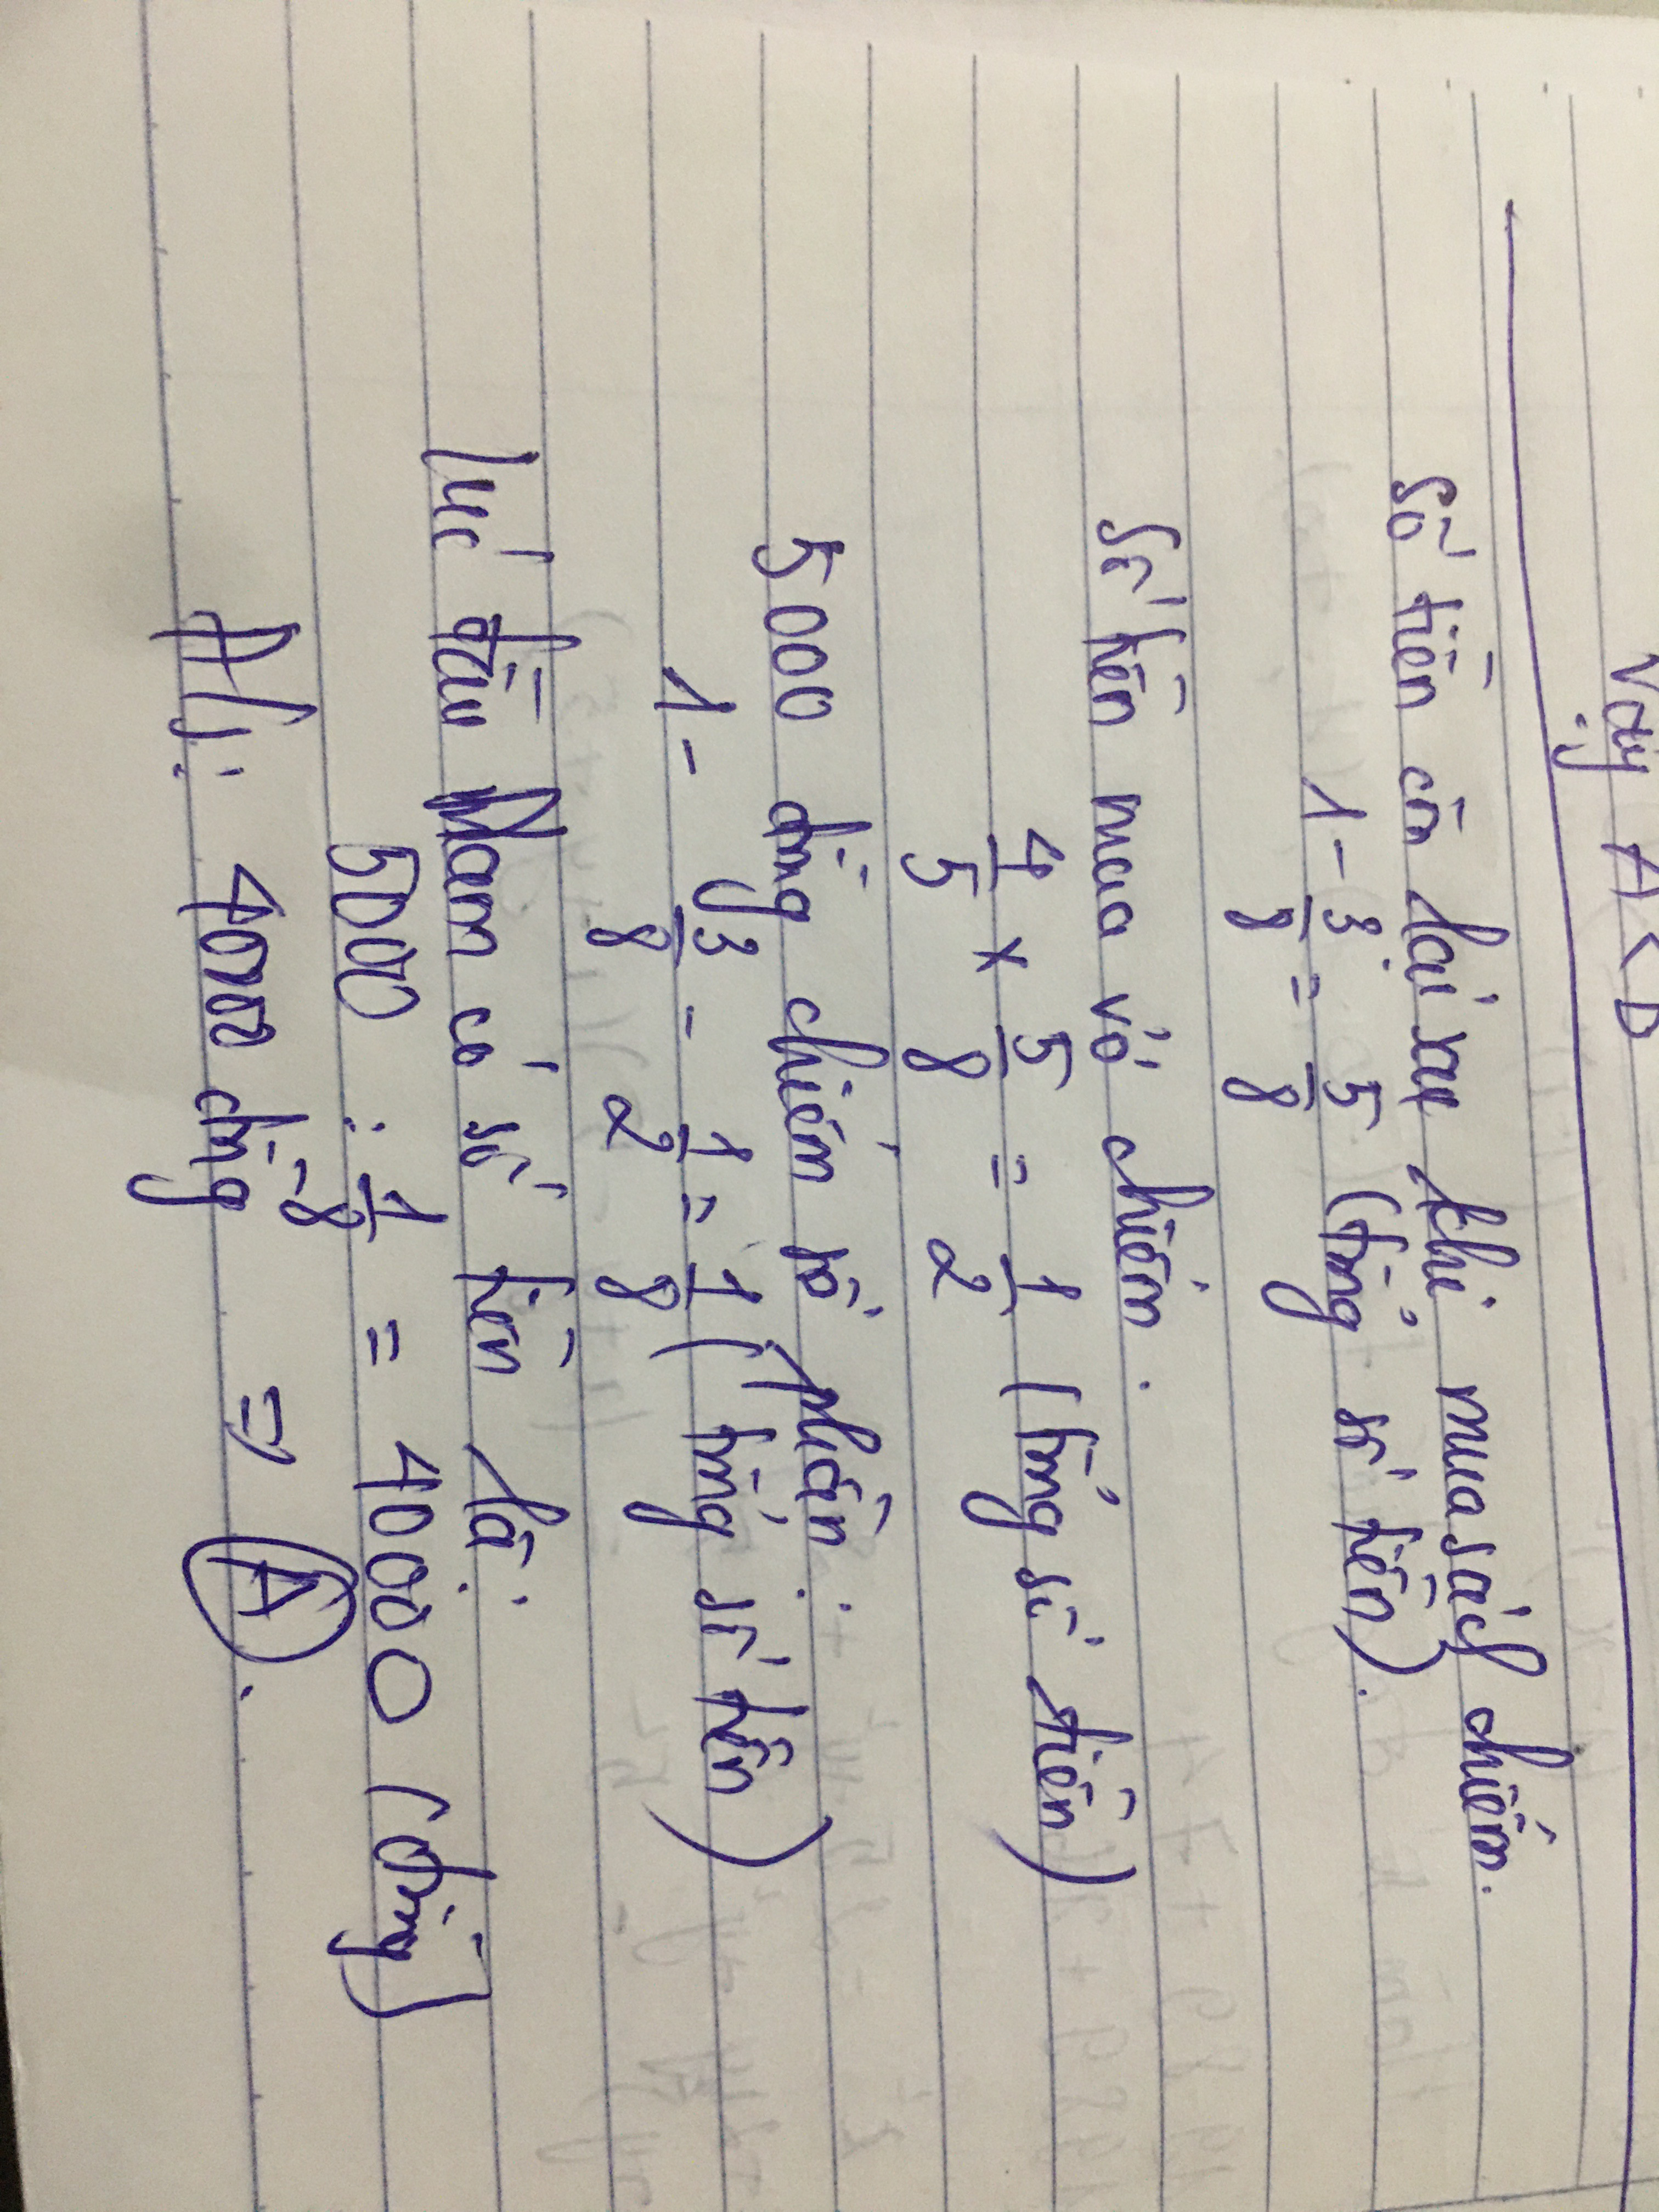 Vậy A < D
Số tiền còn lại sau khi mua sách chiếm.
1 - 3/8 = 5/8 (tổng số tiền).
Số tiền mua vở chiếm.
4/5 x 5/8 = 1/2 (tổng số tiền)
5000 đồng chiếm số phần:
1 - 3/8 - 1/2 = 1/8 (tổng số tiền)
lúc đầu Nam có số tiền là:
5000 : 1/8 = 40000 (đồng)
Đ/S: 40000 đồng => A.